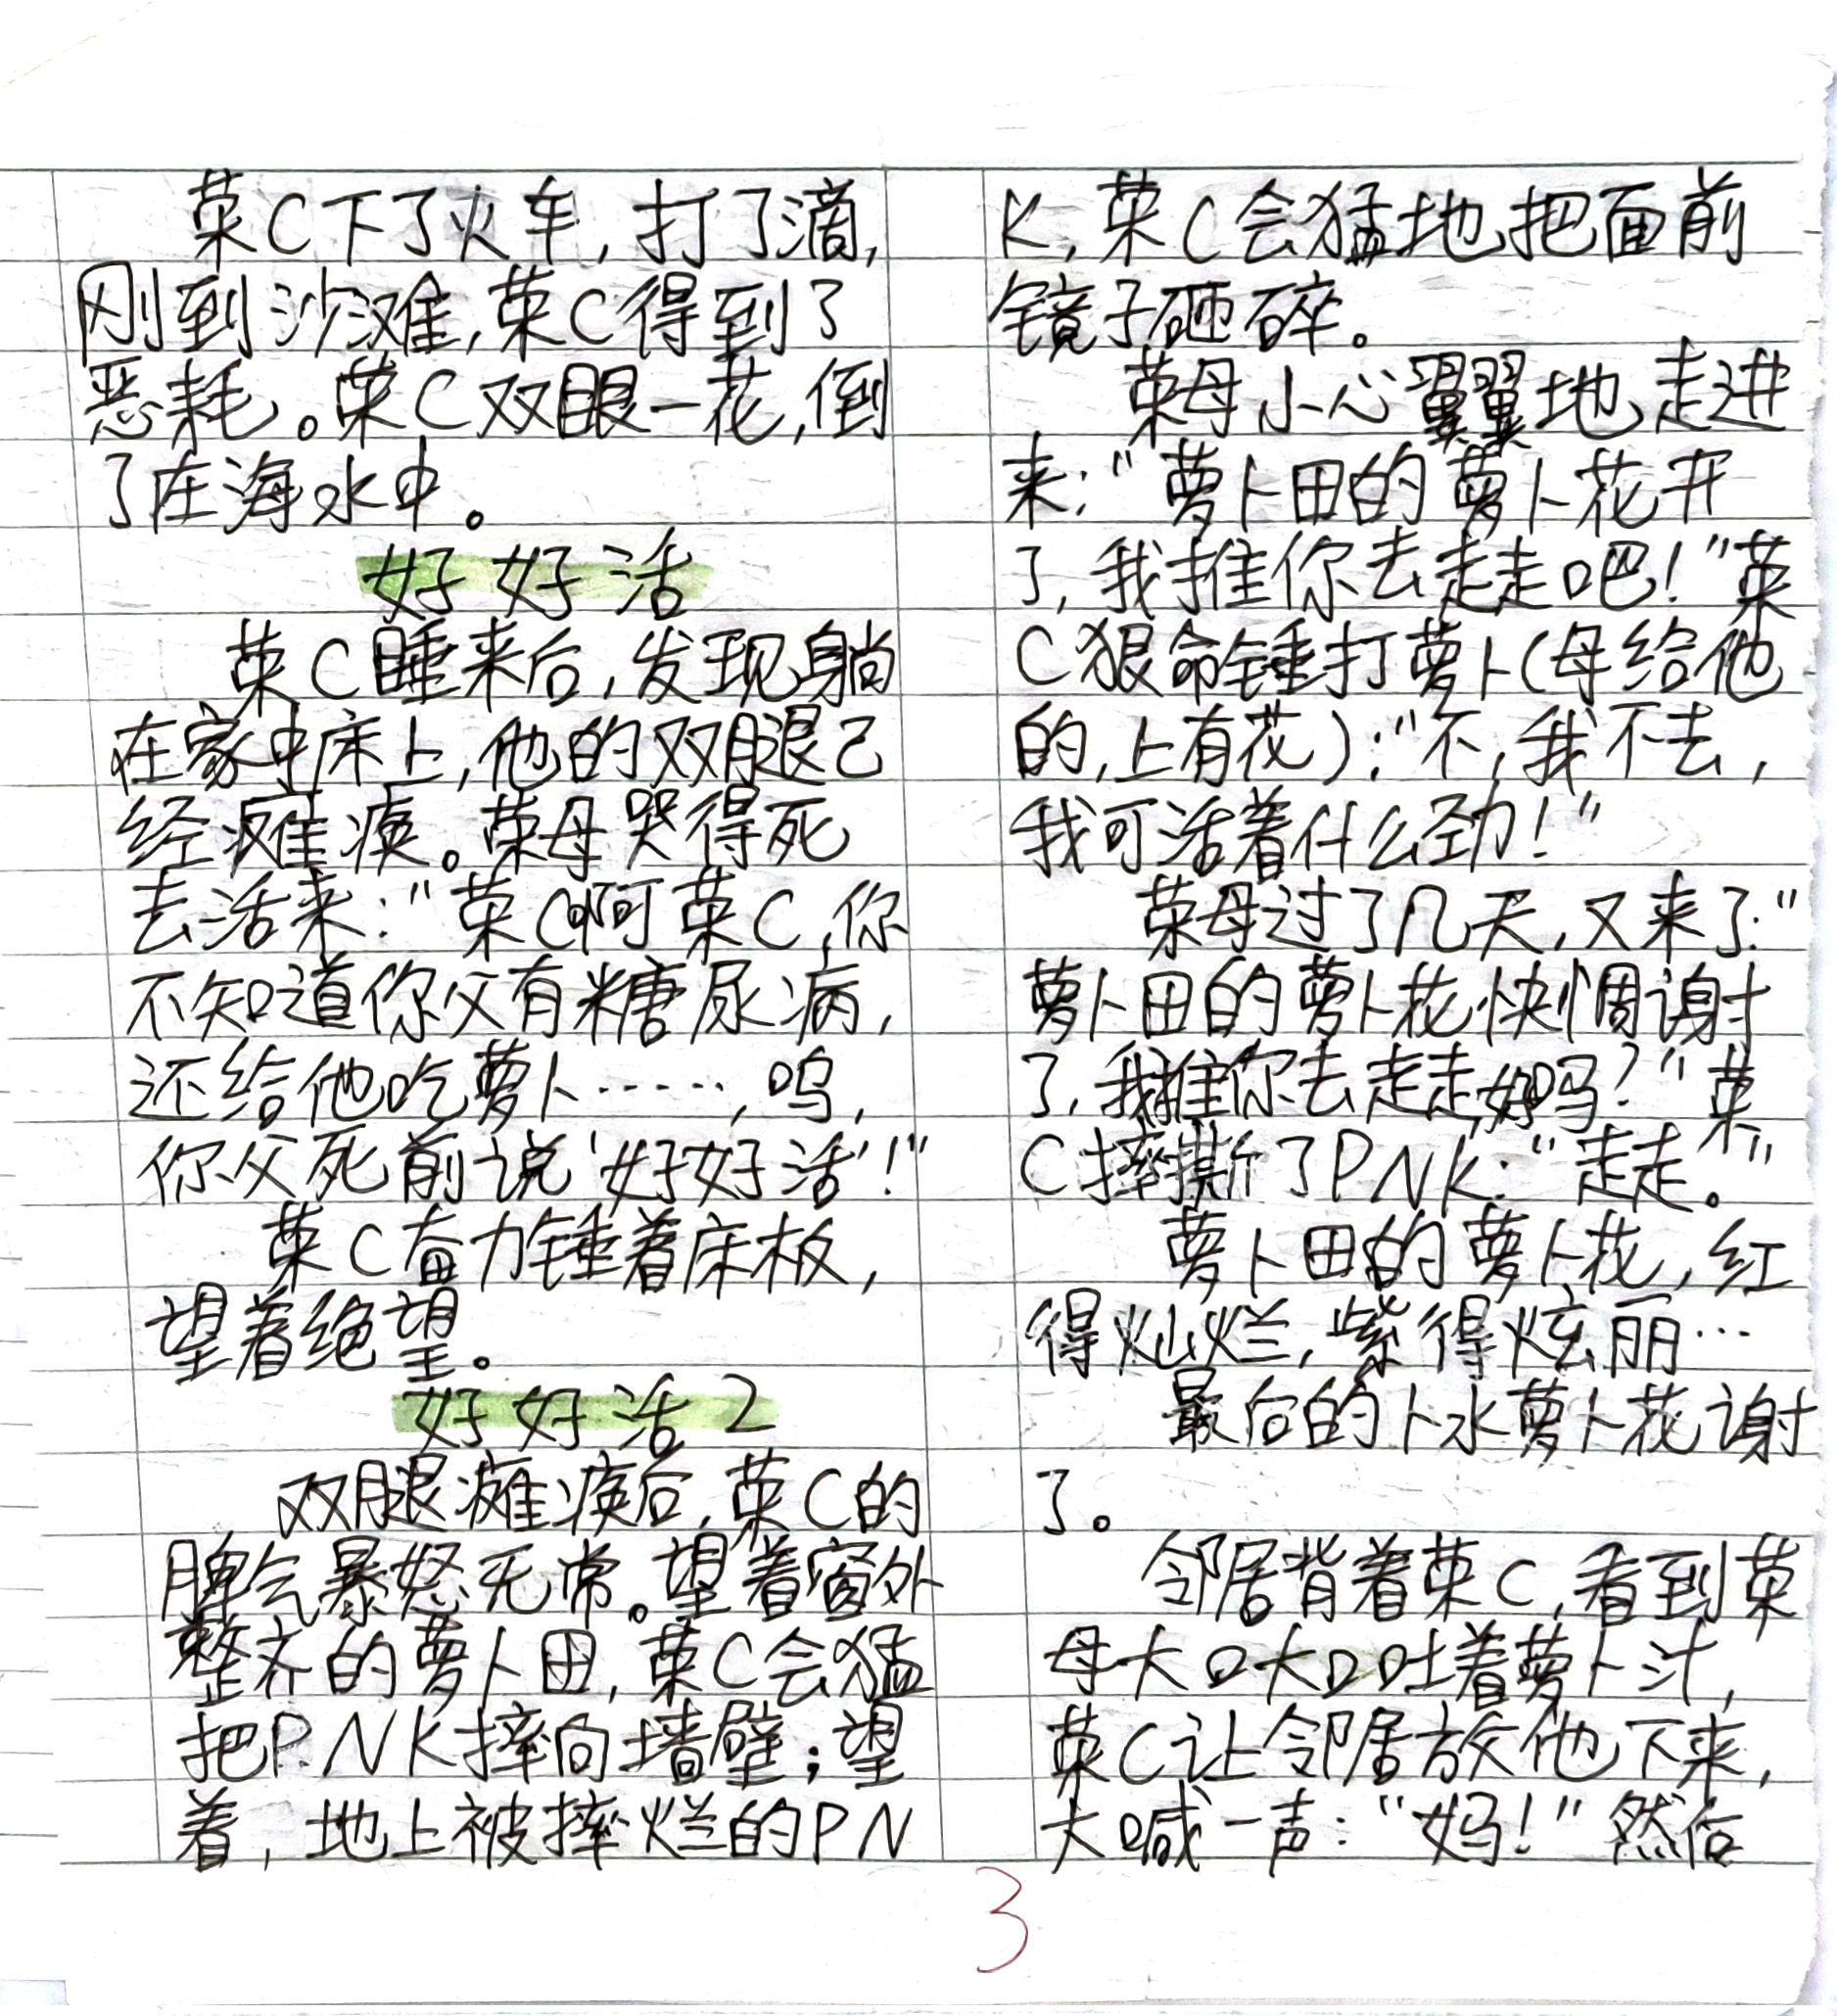 菜C下了火车,打了滴,
刚到沙滩,菜C得到了
恶耗。菜C双眼一花,倒
了在海水中。
好好活
菜C睡来后,发现躺
在家中床上,他的双腿已
经瘫痪。菜母哭得死
去活来:"菜C啊菜C,你
不知道你父有糖尿病,
还给他吃萝卜……,呜,
你父死前说'好好活'!"
菜C奋力锤着床板,
望着绝望。
好好活2
双腿瘫痪后,菜C的
脾气暴怒无常。望着窗外
整齐的萝卜田,菜C会猛
把P.NK摔向墙壁;望
着,地上被摔烂的PN
K,菜C会猛地把面前
镜子砸碎。
菜母小心翼翼地走进
来:"萝卜田的萝卜花开
了,我推你去走走吧!"菜
C狠命锤打萝卜(母给他
的,上有花):"不,我不去,
我可活着什么劲!"
菜母过了几天,又来了:"
萝卜田的萝卜花快凋谢
了,我推你去走走,好吗?"菜
C摔撕了PNK:"走走。"
萝卜田的萝卜花,红
得灿烂,紫得炫丽…
最后的卜水萝卜花谢
了。
邻居背着菜C,看到菜
母大口大口吐着萝卜汁,
菜C让邻居放他下来,
大喊一声:"妈!"然后
3